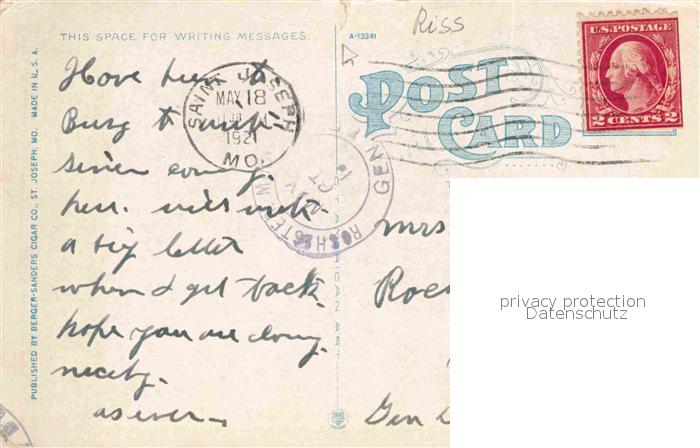 Riss
THIS SPACE FOR WRITING MESSAGES.
A-13241
U.S. POSTAGE
2 CENTS 2
POST CARD
SAINT JOSEPH
MAY 18
1921
MO.
Have been to
Busy to write
since coming
here. will write
a big letter
when I get back.
hope you are doing
nicely.
as ever
ROCHESTER
GEN
Mrs
Gen
PUBLISHED BY BERGER-SANDERS CIGAR CO., ST. JOSEPH, MO. MADE IN U. S. A.
privacy protection
Datenschutz